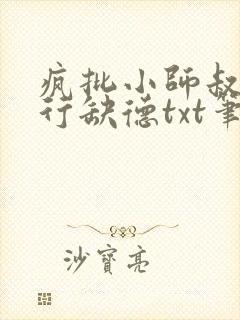 疯批小师叔
行缺德txt笔
沙寶亮